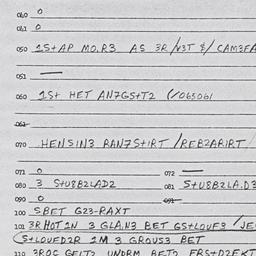 040 0
041 0
050 1S+AP MO.R3 AS 3R /V3T &/ CAM3FA
051 —
060 1S+ HET AN7GS+T2 (/065061
062
070 HENSIN3 RAN7S+IRT /REB2ARIRT /
071 0 072 —
080 3 S+U8B2LAD2 081 S+U8B2LA.D3
090 0 091
100 SBET G23-RAXT
101 3R HOT1N 3 GLA.N3 BET GS+LOUF3 /JE
S+LOUFD2R 1M 3 GROUS3 BET
110 3ROG GELT2 UNDRM BET2 ERS+D2EKT